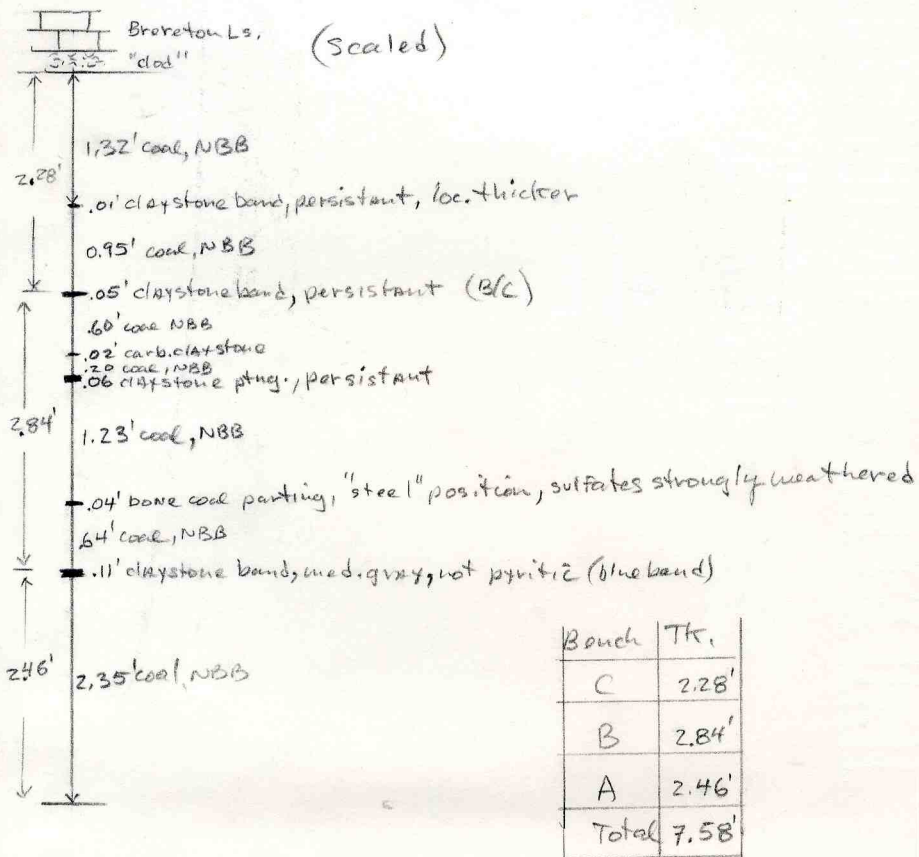 Brereton Ls.
(scaled)
"clod"
2.28'
1.32' coal, NBB
.01' claystone band, persistant, loc. thicker
0.95' coal, NBB
.05' claystone band, persistant (B/C)
2.84'
.60' coal NBB
.02' carb. claystone
.20 coal, NBB
.06 claystone ptng., persistant
1.23' coal, NBB
.04' bone coal parting, "steel" position, sulfates strongly weathered
.64' coal, NBB
.11' claystone band, med. gray, not pyritic (blue band)
2.46'
2.35' coal, NBB
Bench Tk.
C 2.28'
B 2.84'
A 2.46'
Total 7.58'